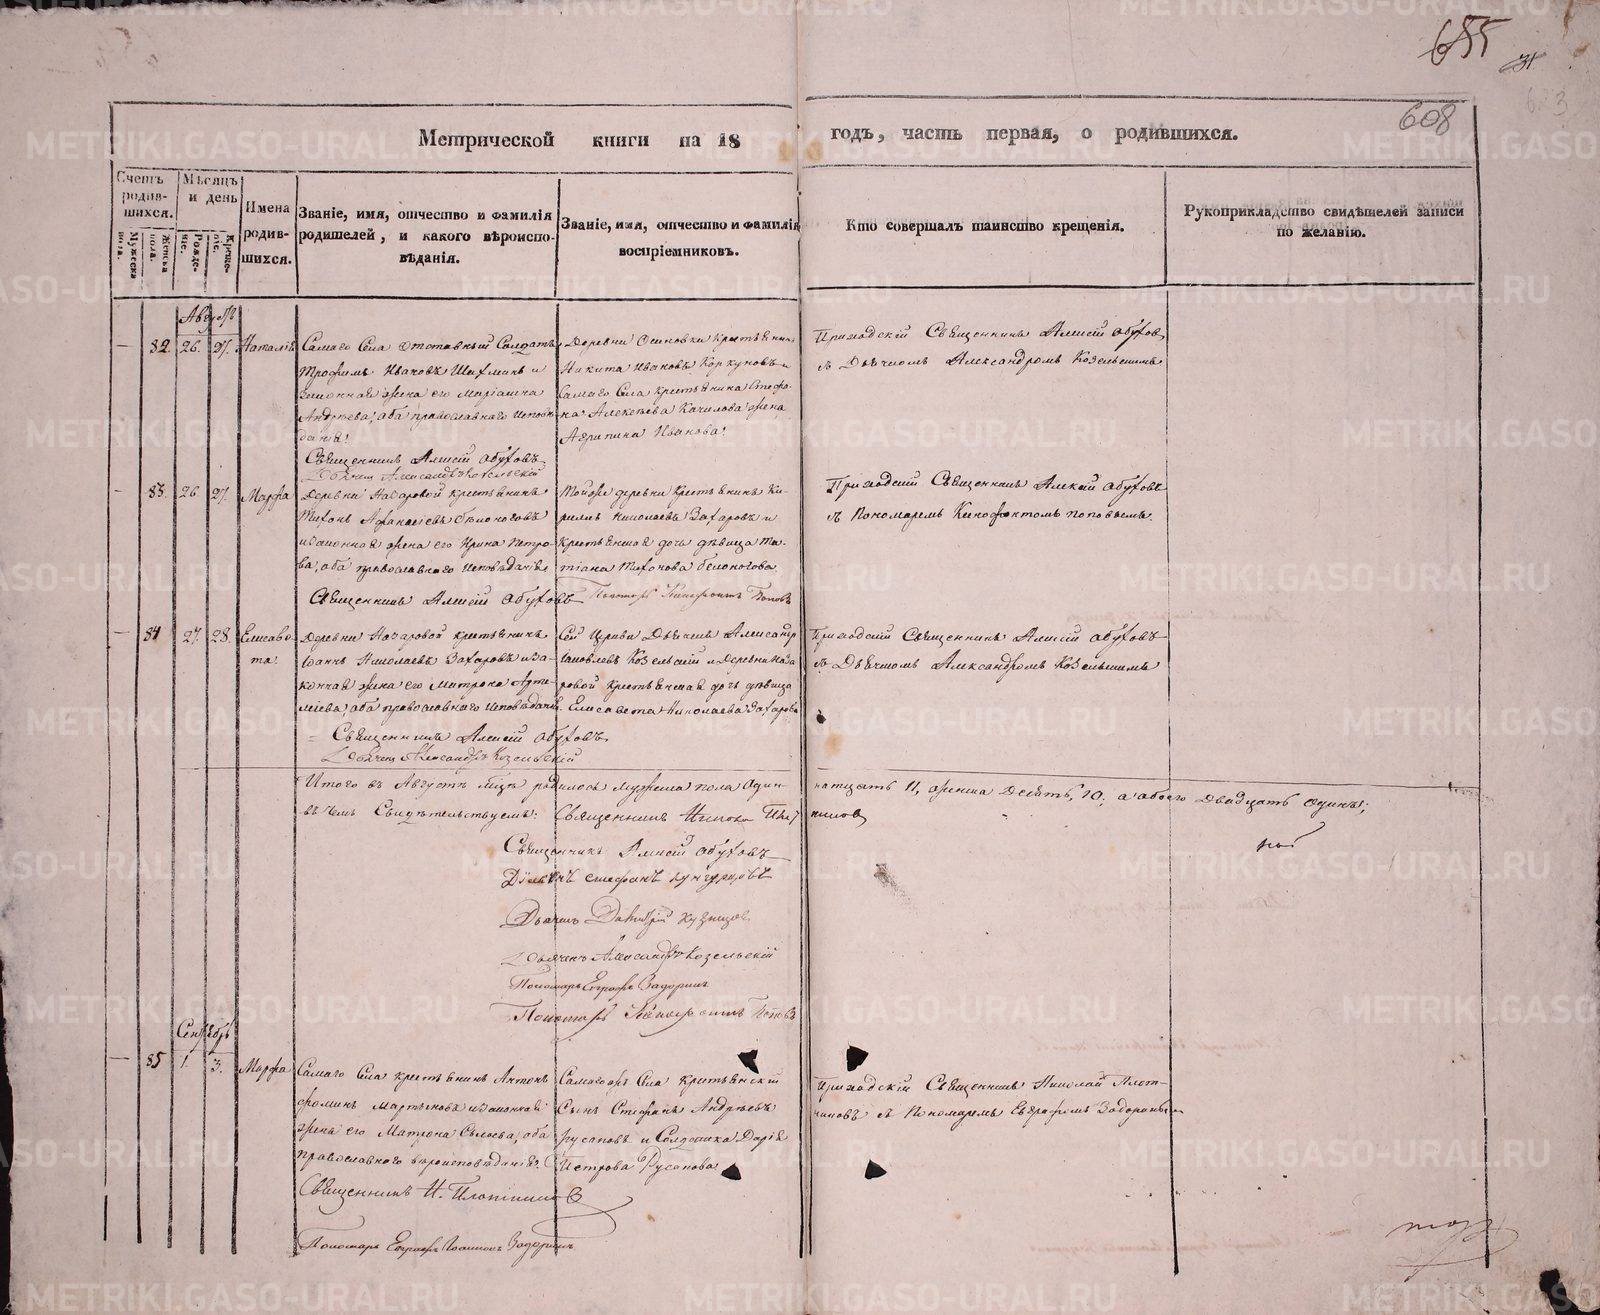 655
31
608
Метрической книги на 18 годъ, часть первая, о родившихся.
Счетъ родив-шихся.
Мужеска пола.
Женска пола.
Мѣсяцъ и день
Рожде-нiе.
Креще-нiе.
Имена родив-шихся.
Званiе, имя, отчество и фамилiя
родителей, и какого вѣроиспо-
вѣданiя.
Званiе, имя, отчество и фамилiя
воспрiемниковъ.
Кто совершалъ таинство крещенiя.
Рукоприкладство свидѣтелей записи
по желанiю.
Августъ
— 82. 26. 27. Наталiя
Самаго Села отставный Солдатъ
Трофимъ Ивановъ и
законная жена его Марiамна
Андреева, оба православнаго исповѣ-
данiя.
Священникъ Алексiй Обуховъ
Дьячекъ Александръ Козельскiй
Деревни Осиновки Крестьянинъ
Никита Ивановъ Коркуновъ и
Самаго Села крестьянина Стефа-
на Алексѣева Качилова жена
Агрипина Иванова.
Приходскiй Священникъ Алексiй Обуховъ
съ Дьячкомъ Александромъ Козельскимъ
— 83. 26 27. Марфа
Деревни Назаровой крестьянинъ
Тихонъ Афанасiевъ Белоноговъ
и законная жена его Ирина Петро-
ва, оба православнаго исповѣданiя
Священникъ Алексiй Обуховъ
Тойже деревни Крестьянинъ Ки-
рилъ Николаевъ Захаровъ и
крестьянская дочь дѣвица Та-
тiана Тихонова Белоногова
Пономарь Ксенофонтъ Поповъ
Приходскiй Священникъ Алексiй Обуховъ
съ Пономаремъ Ксенофонтомъ Поповымъ.
— 84 27. 28. Елисаве-
та.
Деревни Назаровой крестьянинъ
Iоаннъ Николаевъ Захаровъ и за-
конная жена его Матрона Арте-
мiева, оба православнаго исповѣданiя.
Священникъ Алексiй Обуховъ
Дьячекъ Александръ Козельскiй
Сей Церкви Дьячекъ Александръ
Iаковлевъ Козельскiй и Деревни Наза
ровой крестьянская дочь дѣвица
Елисавета Николаева Захарова
Приходскiй Священникъ Алексiй Обуховъ
съ Дьячкомъ Александромъ Козельскимъ
Итого въ Августѣ мцѣ родилось мужеска пола один-надцать 11, женска Десять, 10; а обоего Двадцать одинъ;
въ чемъ Свидѣтельствуемъ: Священникъ Николай Плотниковъ
Священникъ Алексiй Обуховъ
Дiаконъ Стефанъ Кунгурцовъ
Дьячекъ Димитрiй Кузнецов
Дьячекъ Александръ Козельскiй
Пономарь Евграфъ Задоринъ
Пономарь Ксенофонтъ Поповъ
Сентябрь
— 85 1. 3. Марфа
Самаго Села крестьянинъ Антонъ
Фоминъ Мартьяновъ и законная
жена его Матрона Сысоева, оба
православнаго вѣроисповѣданiя.
Священникъ Н. Плотниковъ
Пономарь Евграфъ Iоанновъ Задоринъ
Самагожъ Села крестьянскiй
Сынъ Стефанъ Андреевъ
Русановъ и Солдатка Дарiя
Петрова Русанова
Приходскiй Священникъ Николай Плот-
никовъ съ Пономаремъ Евграфомъ Задоринымъ